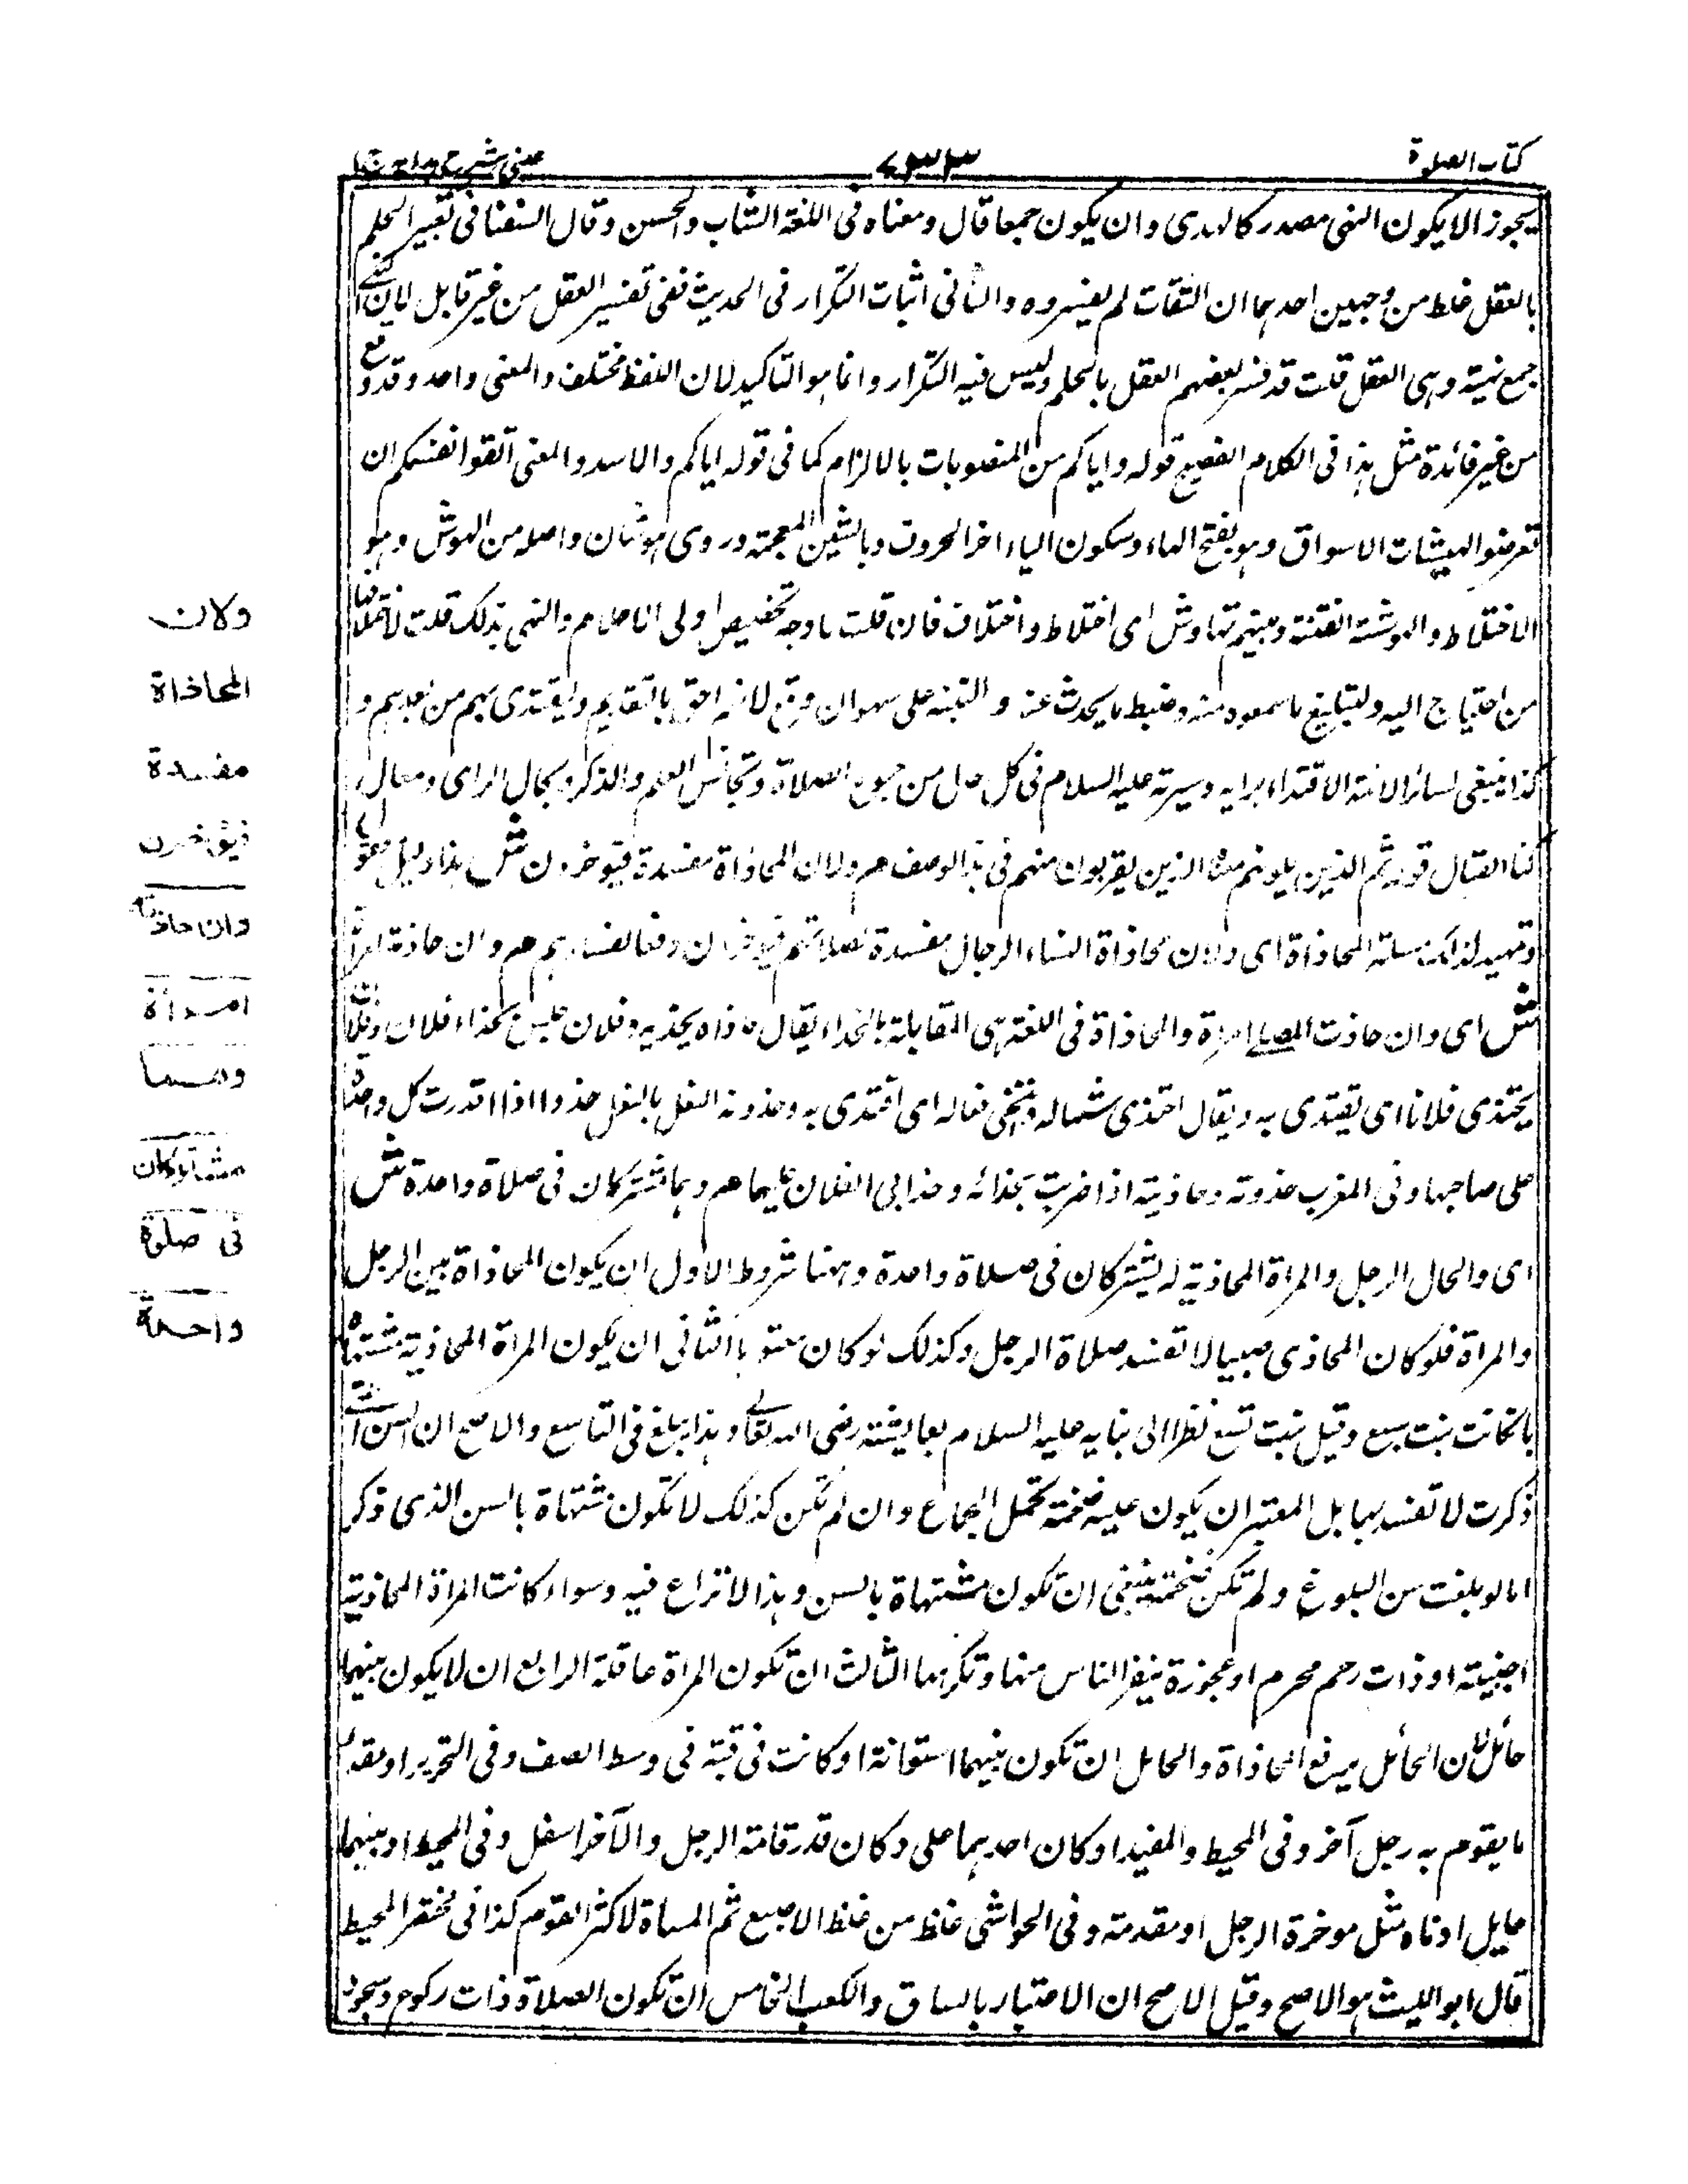 كتاب الصلوة
٧٣٣
عينى شرح هداية ج١
يجوز الا يكون النهى مصدر كالهدى وان يكون جمعا قال ومعناه فى اللغة الشتاب والحسن وقال السغنا فى تعبير الحلم
بالعقل غلط من وجهين احدهما ان الثقات لم يفسروه والثانى اثبات التكرار فى الحديث ففى تفسير العقل من غير قابل لان
جمع نهية وهى العقل قلت قد فسر بعضهم العقل بالحلم وليس فيه التكرار وانما هو التاكيد لان اللفظ مختلف والمعنى واحد وقد وقع
من غير فائدة مثل هذا فى الكلام الفصيح قوله واياكم من المنصوبات بالالزام كما فى قوله اياكم والاسد والمعنى اتقوا انفسكم ان
تعرضوا لهيشات الاسواق وهو بفتح الهاء وسكون الياء اخر الحروف وبالشين المعجمة وروى هوشات واصله من الهوش وهو
الاختلاط والهوشة الفتنة وبينهم تهاوش اى اختلاط واختلاف فان قلت ما وجه تخصيص اولى الاحلام والنهى بذلك قلت
من احتياج اليه ولتبليغ ما سمعوه منه وضبط ما يحدث عنه والتنبه على سهو ان وقع لانه احق بالتقديم وليقتدى بهم من بعدهم و
كذا ينبغى لسائر الائمة الاقتداء برايه وسيرته عليه السلام فى كل حال من جموع الصلاة وتجانس العلم والذكر وبحال الراى ومعال
كنا القتال قوله ثم الذين يلونهم معناه الذين يقربون منهم فى هذا الوصف م ولان المحاذاة مفسدة فيؤخرون ش هذا دليل
وتمهيد لذلك مسئلة المحاذاة اى ولان محاذاة النساء الرجال مفسدة لصلاتهم فيؤخرن دفعا لفسادهم م وان حاذته امرأة
ش اى وان حاذت المصلى امرأة والمحاذاة فى اللغة هى المقابلة بالحذاء يقال حاذاه يحذيه وفلان جلس بحذاء فلان وفلان
يحتذى فلانا اى يقتدى به ويقال احتذى شماله وينتحى فعاله اى اقتدى به وحذوته النعل بالنعل حذوا اذا قدرت كل واحدة
على صاحبها وفى المغرب حذوته وحاذيته اذا ضربت بحذائه وحذا بى الفلان عليهما م وهما مشتركان فى صلاة واحدة ش
اى والحال الرجل والمراة المحاذية له يشتركان فى صلاة واحدة وههنا شروط الاول ان يكون المحاذاة بين الرجل
والمراة فلو كان المحاذى صبيا لا تفسد صلاة الرجل وكذلك لو كان معتوبا الثانى ان يكون المراة المحاذية مشتهاة
بانكانت بنت سبع وقيل بنت تسع نظرا الى بنايه عليه السلام بعايشة رضى الله تعالى وهذا يبلغ فى التاسع والاصح ان السن
ذكرت لا تفسد بها بل المعتبر ان يكون عليه ضخمة تحتمل الجماع وان لم تكن كذلك لا تكون مشتهاة بالسن الذى ذكر
اما لو بلغت سن البلوغ ولم تكن ضخمة ينبغى ان تكون مشتهاة بالسن وهذا لا نزاع فيه وسواء كانت المراة المحاذية
اجنبية او ذات رحم محرم او عجوزة ينفر الناس منها وتكرهها الثالث ان تكون المراة عاقلة الرابع ان لا يكون بينهما
حائل لان الحائل يرفع المحاذاة والحايل ان تكون بينهما استوانة او كانت فى قبة فى وسط الصف وفى التحرير او مقد
ما يقوم به رجل آخر وفى المحيط والمفيد او كان احدهما على دكان قدر قامة الرجل والآخر اسفل وفى المحيط او بينهما
حايل ادناه مثل موخرة الرحل او مقدمته وفى الحواشى غلظ من غلظ الاصبع ثم المساة لاكثر القوم كذا فى مختصر المحيط
قال ابو الليث هو الاصح وقيل الاصح ان الاعتبار بالساق والكعب الخامس ان تكون الصلاة ذات ركوع وسجود
ولان
المحاذاة
مفسدة
فيؤخرن
وان حاذته
امرأة
وهما
مشتركان
فى صلوة
واحدة